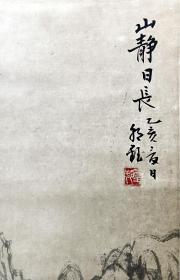 山静日長
乙亥夏日